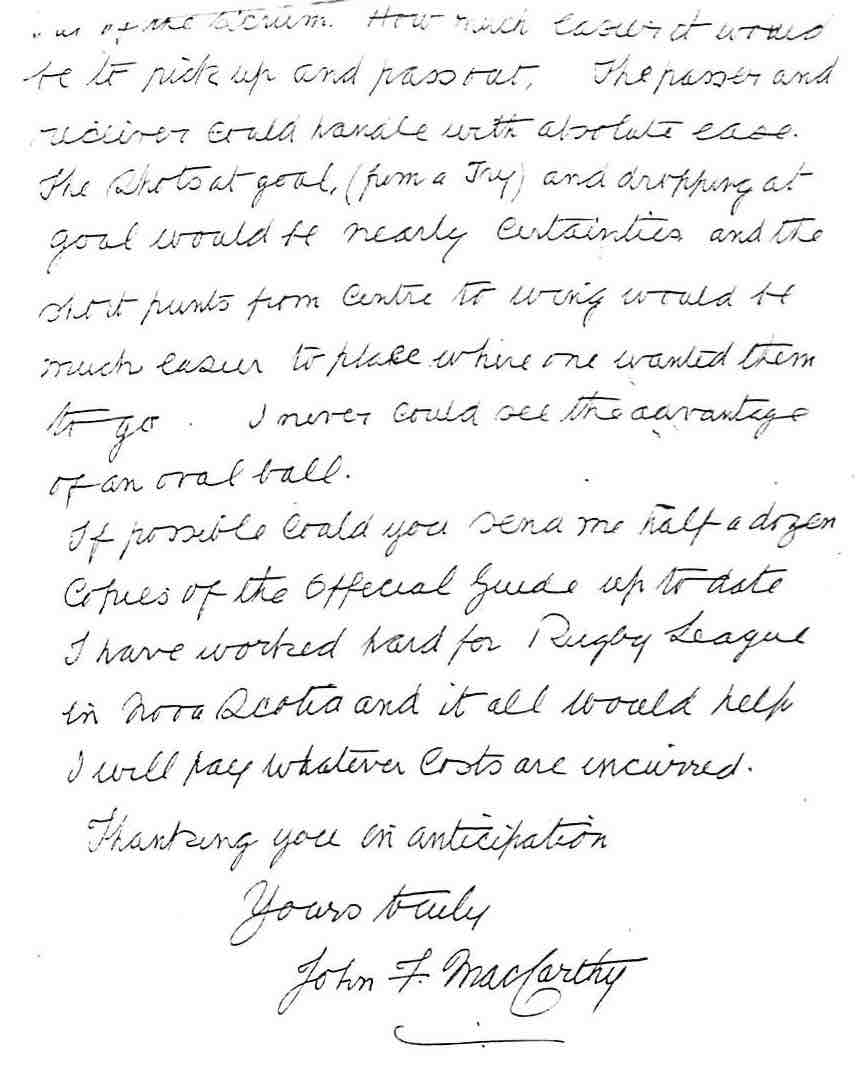 out of the scrum. How much easier it would
be to pick up and pass out. The passer and
receiver could handle with absolute ease.
The shots at goal, (from a Try) and dropping at
goal would be nearly certainties and the
short punts from Centre to wing would be
much easier to place where one wanted them
to go. I never could see the advantage
of an oval ball.
If possible could you send me half a dozen
Copies of the Official Guide up to date
I have worked hard for Rugby League
in Nova Scotia and it all would help
I will pay whatever costs are incurred.
Thanking you in anticipation
Yours truly
John F. MacCarthy